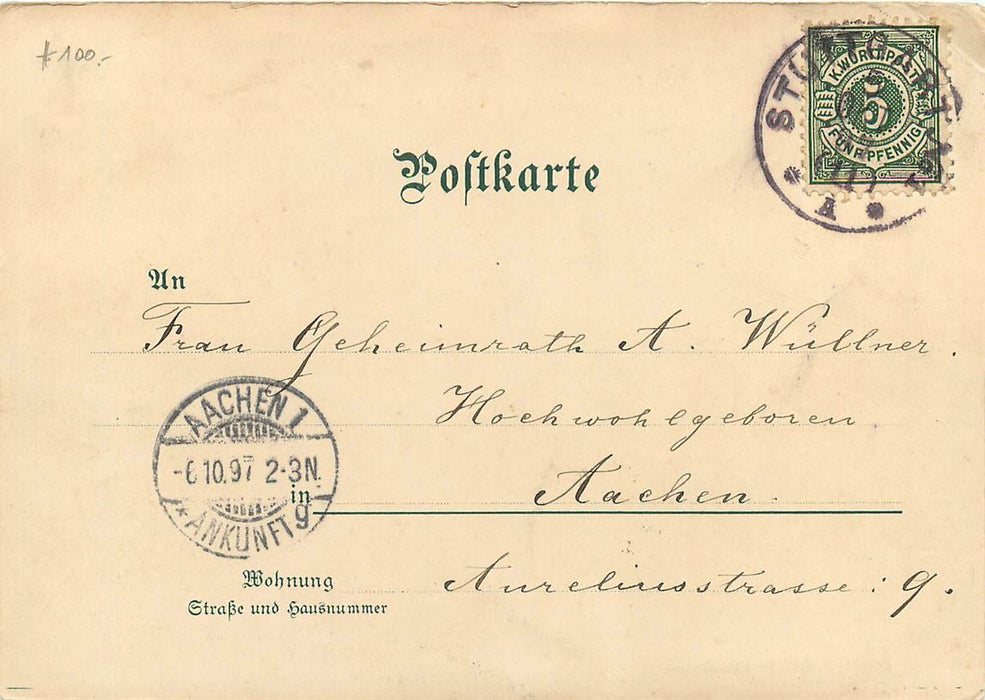 100.-
STUTTGART
K.WÜRTT.POST
5
FÜNF PFENNIG
A
Postkarte
An
Frau Geheimrath A. Wüllner.
Hochwohlgeboren
AACHEN 1
-6.10.97 2-3N.
ANKUNFT g
in Aachen.
Wohnung
Straße und Hausnummer
Aureliusstrasse: 9.